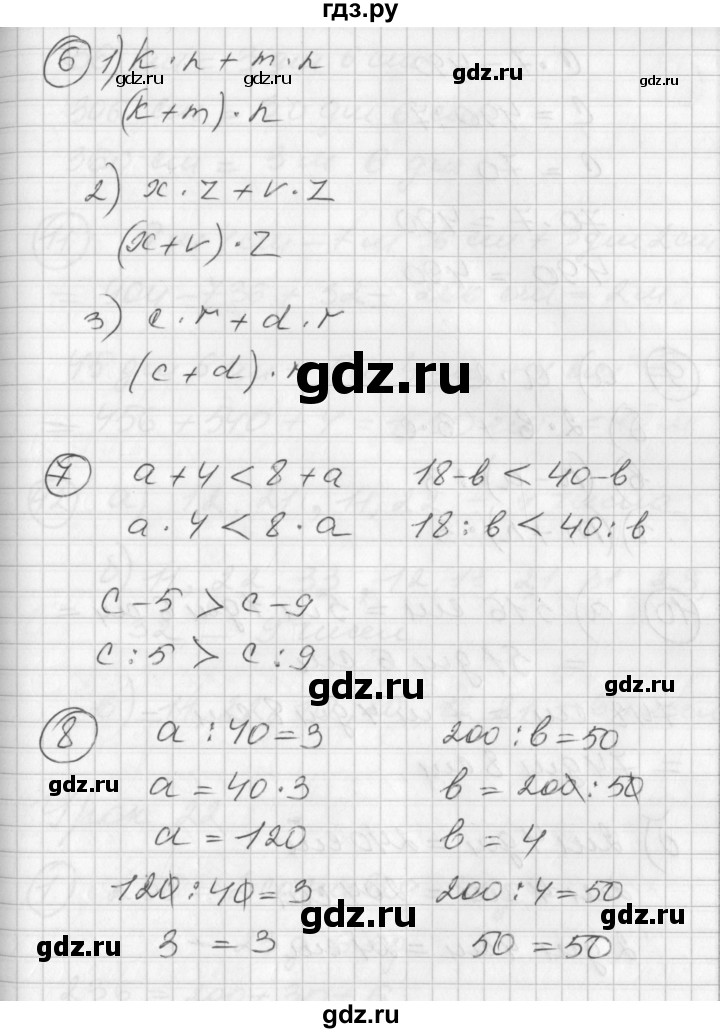 гдз.ру
6 1) k · n + m · n
gdz.ru gdz.ru gdz.ru
(k + m) · n
2) x · z + v · z
(x + v) · z
gdz.ru gdz.ru
3) c · r + d · r
(c + d) · r
gdz.ru
7 a + 4 < 8 + a 18 - b < 40 - b
a · 4 < 8 · a 18 : b < 40 : b
c - 5 > c - 9
c : 5 > c : 9
gdz.ru gdz.ru
8 a : 40 = 3 200 : b = 50
gdz.ru a = 40 · 3 b = 200 : 50
a = 120 b = 4
120 : 40 = 3 200 : 4 = 50
gdz.ru gdz.ru
gdz.ru 3 = 3 50 = 50
gdz.ru